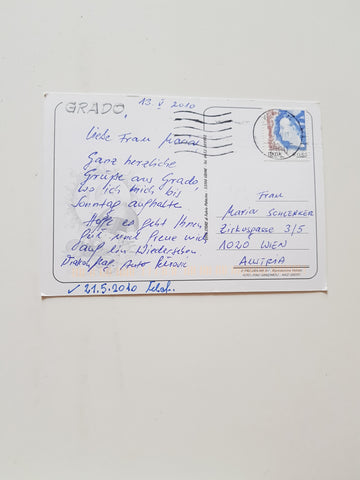 GRADO,
13. V 2010
Liebe Frau Maria
Ganz herzliche
Grüße aus Grado
wo ich mich bis
Sonntag aufhalte
Hoffe es geht Ihnen
gut und freue mich
auf ein Wiedersehen
ITALIA
Frau
Maria
Zirkusgasse 3/5
1020 WIEN
AUSTRIA
✓ 21.5.2010